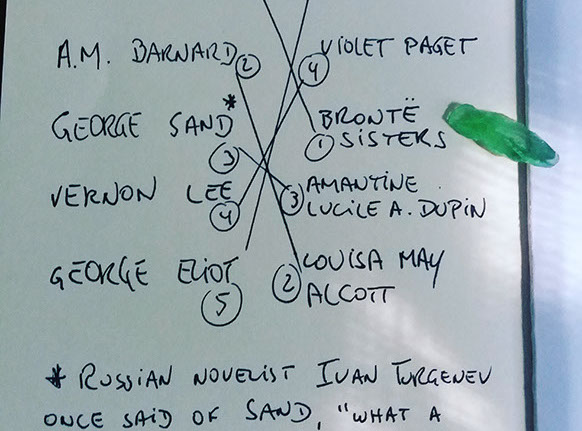 A.M. BARNARD 2
GEORGE SAND*
3
VERNON LEE
4
GEORGE ELIOT
5
VIOLET PAGET
4
BRONTË
1 SISTERS
3 AMANTINE
LUCILE A. DUPIN
2 LOUISA MAY
ALCOTT
* RUSSIAN NOVELIST IVAN TURGENEV
ONCE SAID OF SAND, "WHAT A